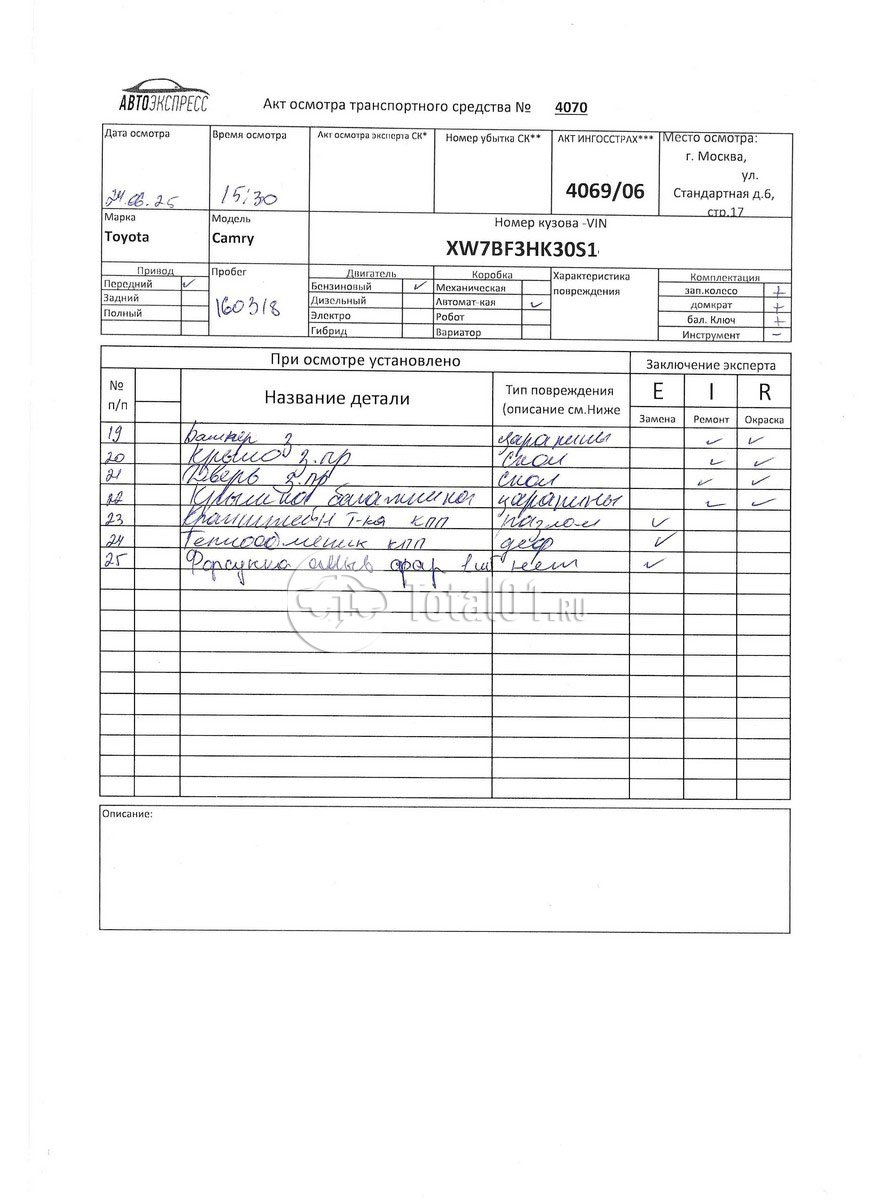 АВТОЭКСПРЕСС
Акт осмотра транспортного средства № 4070
Дата осмотра
24.06.25
Время осмотра
15:30
Акт осмотра эксперта СК*
Номер убытка СК**
АКТ ИНГОССТРАХ***
4069/06
Место осмотра:
г. Москва,
ул.
Стандартная д.6,
стр.17
Марка
Toyota
Модель
Camry
Номер кузова -VIN
XW7BF3HK30S1
Привод
Передний ✓
Задний
Полный
Пробег
160318
Двигатель
Бензиновый ✓
Дизельный
Электро
Гибрид
Коробка
Механическая
Автомат-кая ✓
Робот
Вариатор
Характеристика
повреждения
Комплектация
зап.колесо +
домкрат +
бал. Ключ +
Инструмент –
При осмотре установлено
Заключение эксперта
№
п/п
Название детали
Тип повреждения
(описание см.Ниже
E I R
Замена Ремонт Окраска
19 Бампер з царапины ✓ ✓
20 Крыло з.пр скол ✓ ✓
21 Дверь з.пр скол ✓ ✓
22 Крышка багажника царапины ✓ ✓
23 Кронштейн т-ка кпп разлом ✓
24 Теплообменик кпп деф ✓
25 Форсунка омыв фар 1шт нет ✓
Total01.RU
Описание: